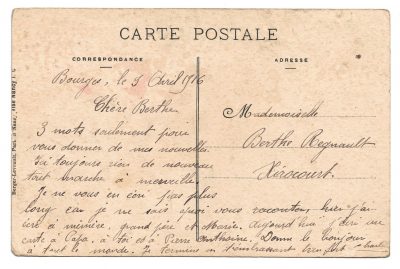 CARTE POSTALE
CORRESPONDANCE
ADRESSE
Bourges, le 3 Avril 1916
Chère Berthe
3 mots seulement pour
vous donner de mes nouvelles.
Ici toujours rien de nouveau
tout marche à merveille.
Je ne vous en écri pas plus
long car je ne sais quoi vous raconter, hier j'ai
écri à mémère, grand père et Marie. Aujourd'hui j'écri une
carte à Papa, à toi et à Pierre Donne le bonjour
à tout le monde. Je termine en t'embrassant
Mademoiselle
Berthe Regnault
Xirocourt